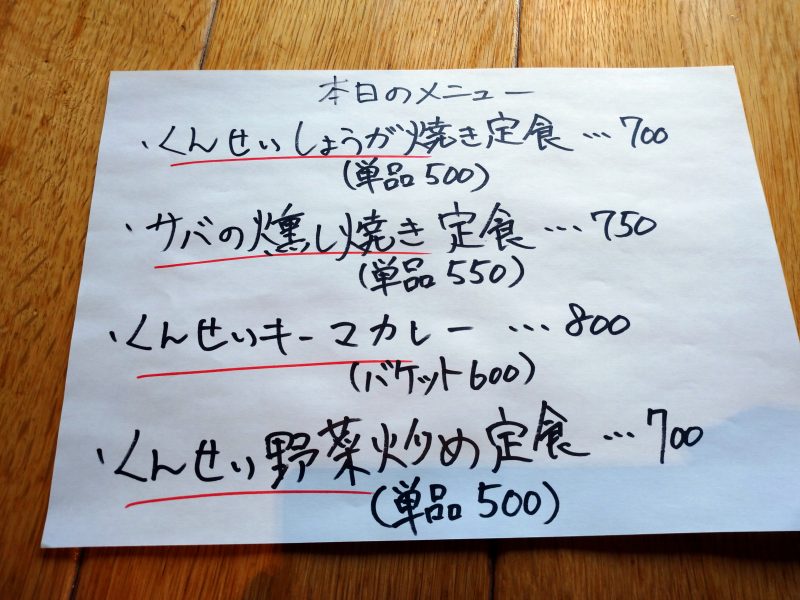 本日のメニュー
・くんせいしょうが焼き定食…700
(単品500)
・サバの燻し焼き定食…750
(単品550)
・くんせいキーマカレー…800
(バケット600)
・くんせい野菜炒め定食…700
(単品500)